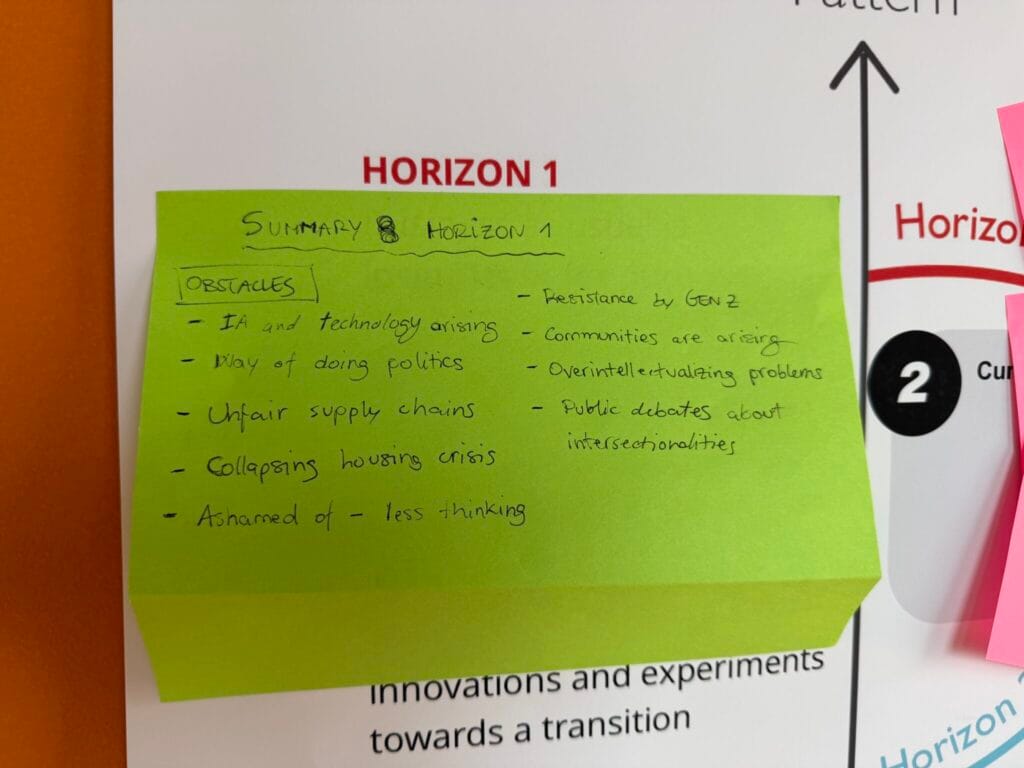 Pattern
HORIZON 1
SUMMARY HORIZON 1
OBSTACLES
- IA and technology arising
- Way of doing politics
- Unfair supply chains
- Collapsing housing crisis
- Ashamed of - less thinking
- Resistance by GEN Z
- Communities are arising
- Overintellectualizing problems
- Public debates about
intersectionalities
innovations and experiments
towards a transition
Horizo
2
Cur
Horizon